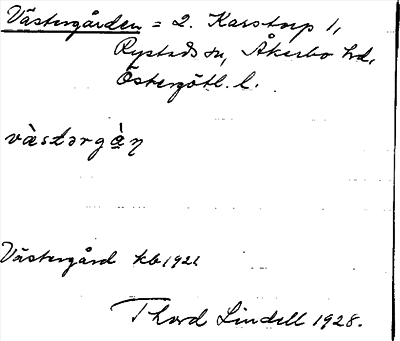 Västergården = 2. Karstorp 1,
Rystads sn, Åkerbo hd,
Östergötl. l.
vàstərgàn̥
Västergård kb 1921
Thord Lindell 1928.